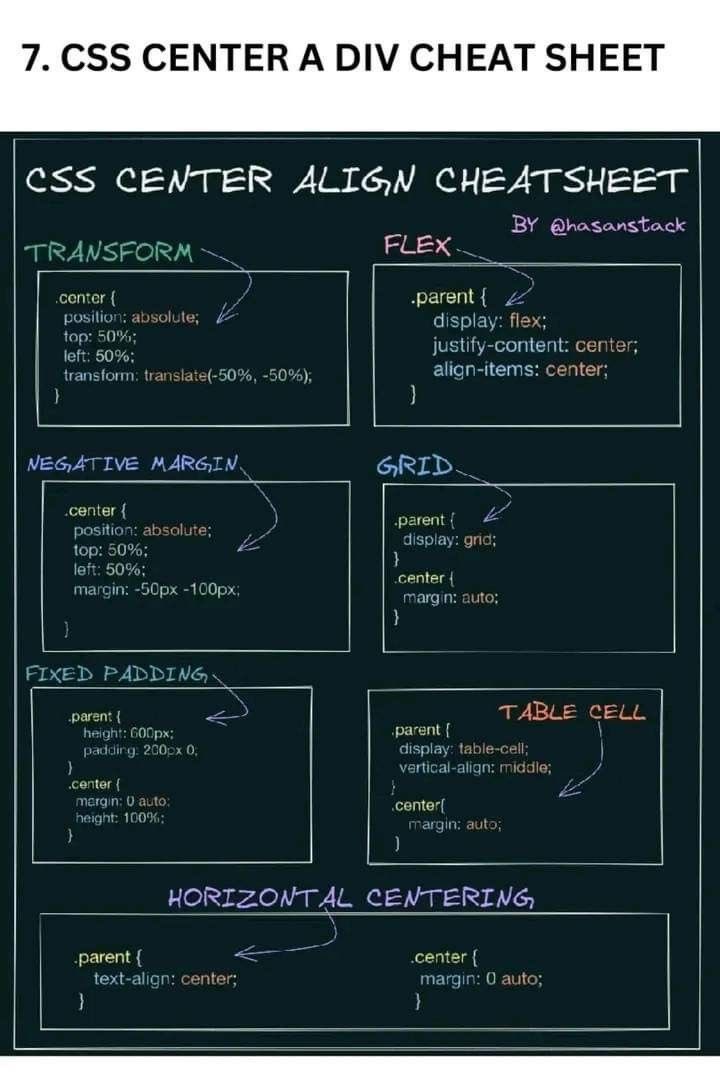 7. CSS CENTER A DIV CHEAT SHEET
CSS CENTER ALIGN CHEATSHEET
BY @hasanstack
TRANSFORM
.center {
position: absolute;
top: 50%;
left: 50%;
transform: translate(-50%, -50%);
}
FLEX
.parent {
display: flex;
justify-content: center;
align-items: center;
}
NEGATIVE MARGIN
.center {
position: absolute;
top: 50%;
left: 50%;
margin: -50px -100px;
}
GRID
.parent {
display: grid;
}
.center {
margin: auto;
}
FIXED PADDING
.parent {
height: 600px;
padding: 200px 0;
}
.center {
margin: 0 auto;
height: 100%;
}
TABLE CELL
.parent {
display: table-cell;
vertical-align: middle;
}
.center{
margin: auto;
}
HORIZONTAL CENTERING
.parent {
text-align: center;
}
.center {
margin: 0 auto;
}